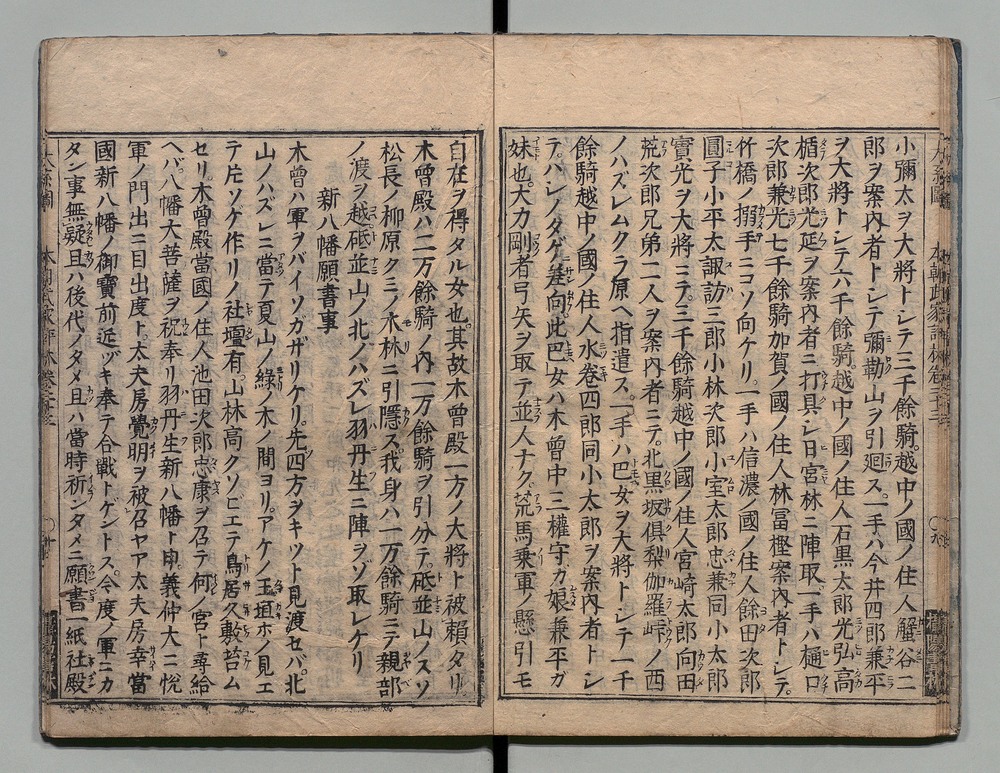 小彌太ヲ大將トシテ三千餘騎。越中ノ國ノ住人蟹谷二
郎ヲ案内者トシテ彌勒山ヲ引廻ス。一手ハ今井四郎兼平
ヲ大將トシテ六千餘騎。越中ノ國ノ住人石黒太郎光弘高
楯次郎光延ヲ案内者ニ打具シ日宮林ニ陣取。一手ハ樋口
次郎兼光七千餘騎加賀ノ國ノ住人林冨樫案内者トシテ。
竹橋ノ搦手ニコソ向ケリ。一手ハ信濃ノ國ノ住人餘田次郎
圓子小平太諏訪三郎小林次郎小室太郎忠兼同小太郎
實光ヲ大將ニテ。三千餘騎越中ノ國ノ住人宮﨑太郎向田
荒次郎兄弟二人ヲ案内者ニテ。北黒坂倶梨伽羅峠ノ西
ノハズレムクラ原ヘ指遣ス。一手ハ巴女ヲ大將トシテ一千
餘騎越中ノ國ノ住人水巻四郎同小太郎ヲ案内者トシ
テ。ハシノタゲヘ差向。此巴女ハ木曾中三權守カ娘兼平ガ
妹也。大力剛者弓矢ヲ取テ並人ナク。荒馬乗軍ノ懸引モ
自在ヲ得タル女也。其故木曾殿一方ノ大將ト被賴タリ
木曾殿ハ二万餘騎ノ内一万餘騎ヲ引分テ。砥並山ノスソ
松長ノ柳原クミノ木林ニ引隱ス。我身ハ一万餘騎ニテ親部
ノ渡ヲ越。砥並山ノ北ノハズレ羽丹生ニ陣ヲゾ取レケリ
新八幡願書事
木曾ハ軍ヲバイソガザリケリ。先四方ヲキツト見渡セバ。北
山ノハズレニ當テ夏山ノ緑ノ木ノ間ヨリ。アケノ玉垣ホノ見エ
テ片ソゲ作リノ社壇有。山林高クソビエテ鳥居久敷苔ム
セリ。木曾殿當國ノ住人池田次郎忠康ヲ召テ何ノ宮ト尋給
ヘバ。八幡大菩薩ヲ祝奉リ羽丹生新八幡ト申。義仲大ニ悦
軍ノ門出ニ目出度ト。太夫房覺明ヲ被召ヤア太夫房幸當
國新八幡ノ御寶前近ヅキ奉テ合戰トゲントス。今度ノ軍ニカ
タン事無疑且ハ後代ノタメ且ハ當時祈ンタメニ願書一紙社殿